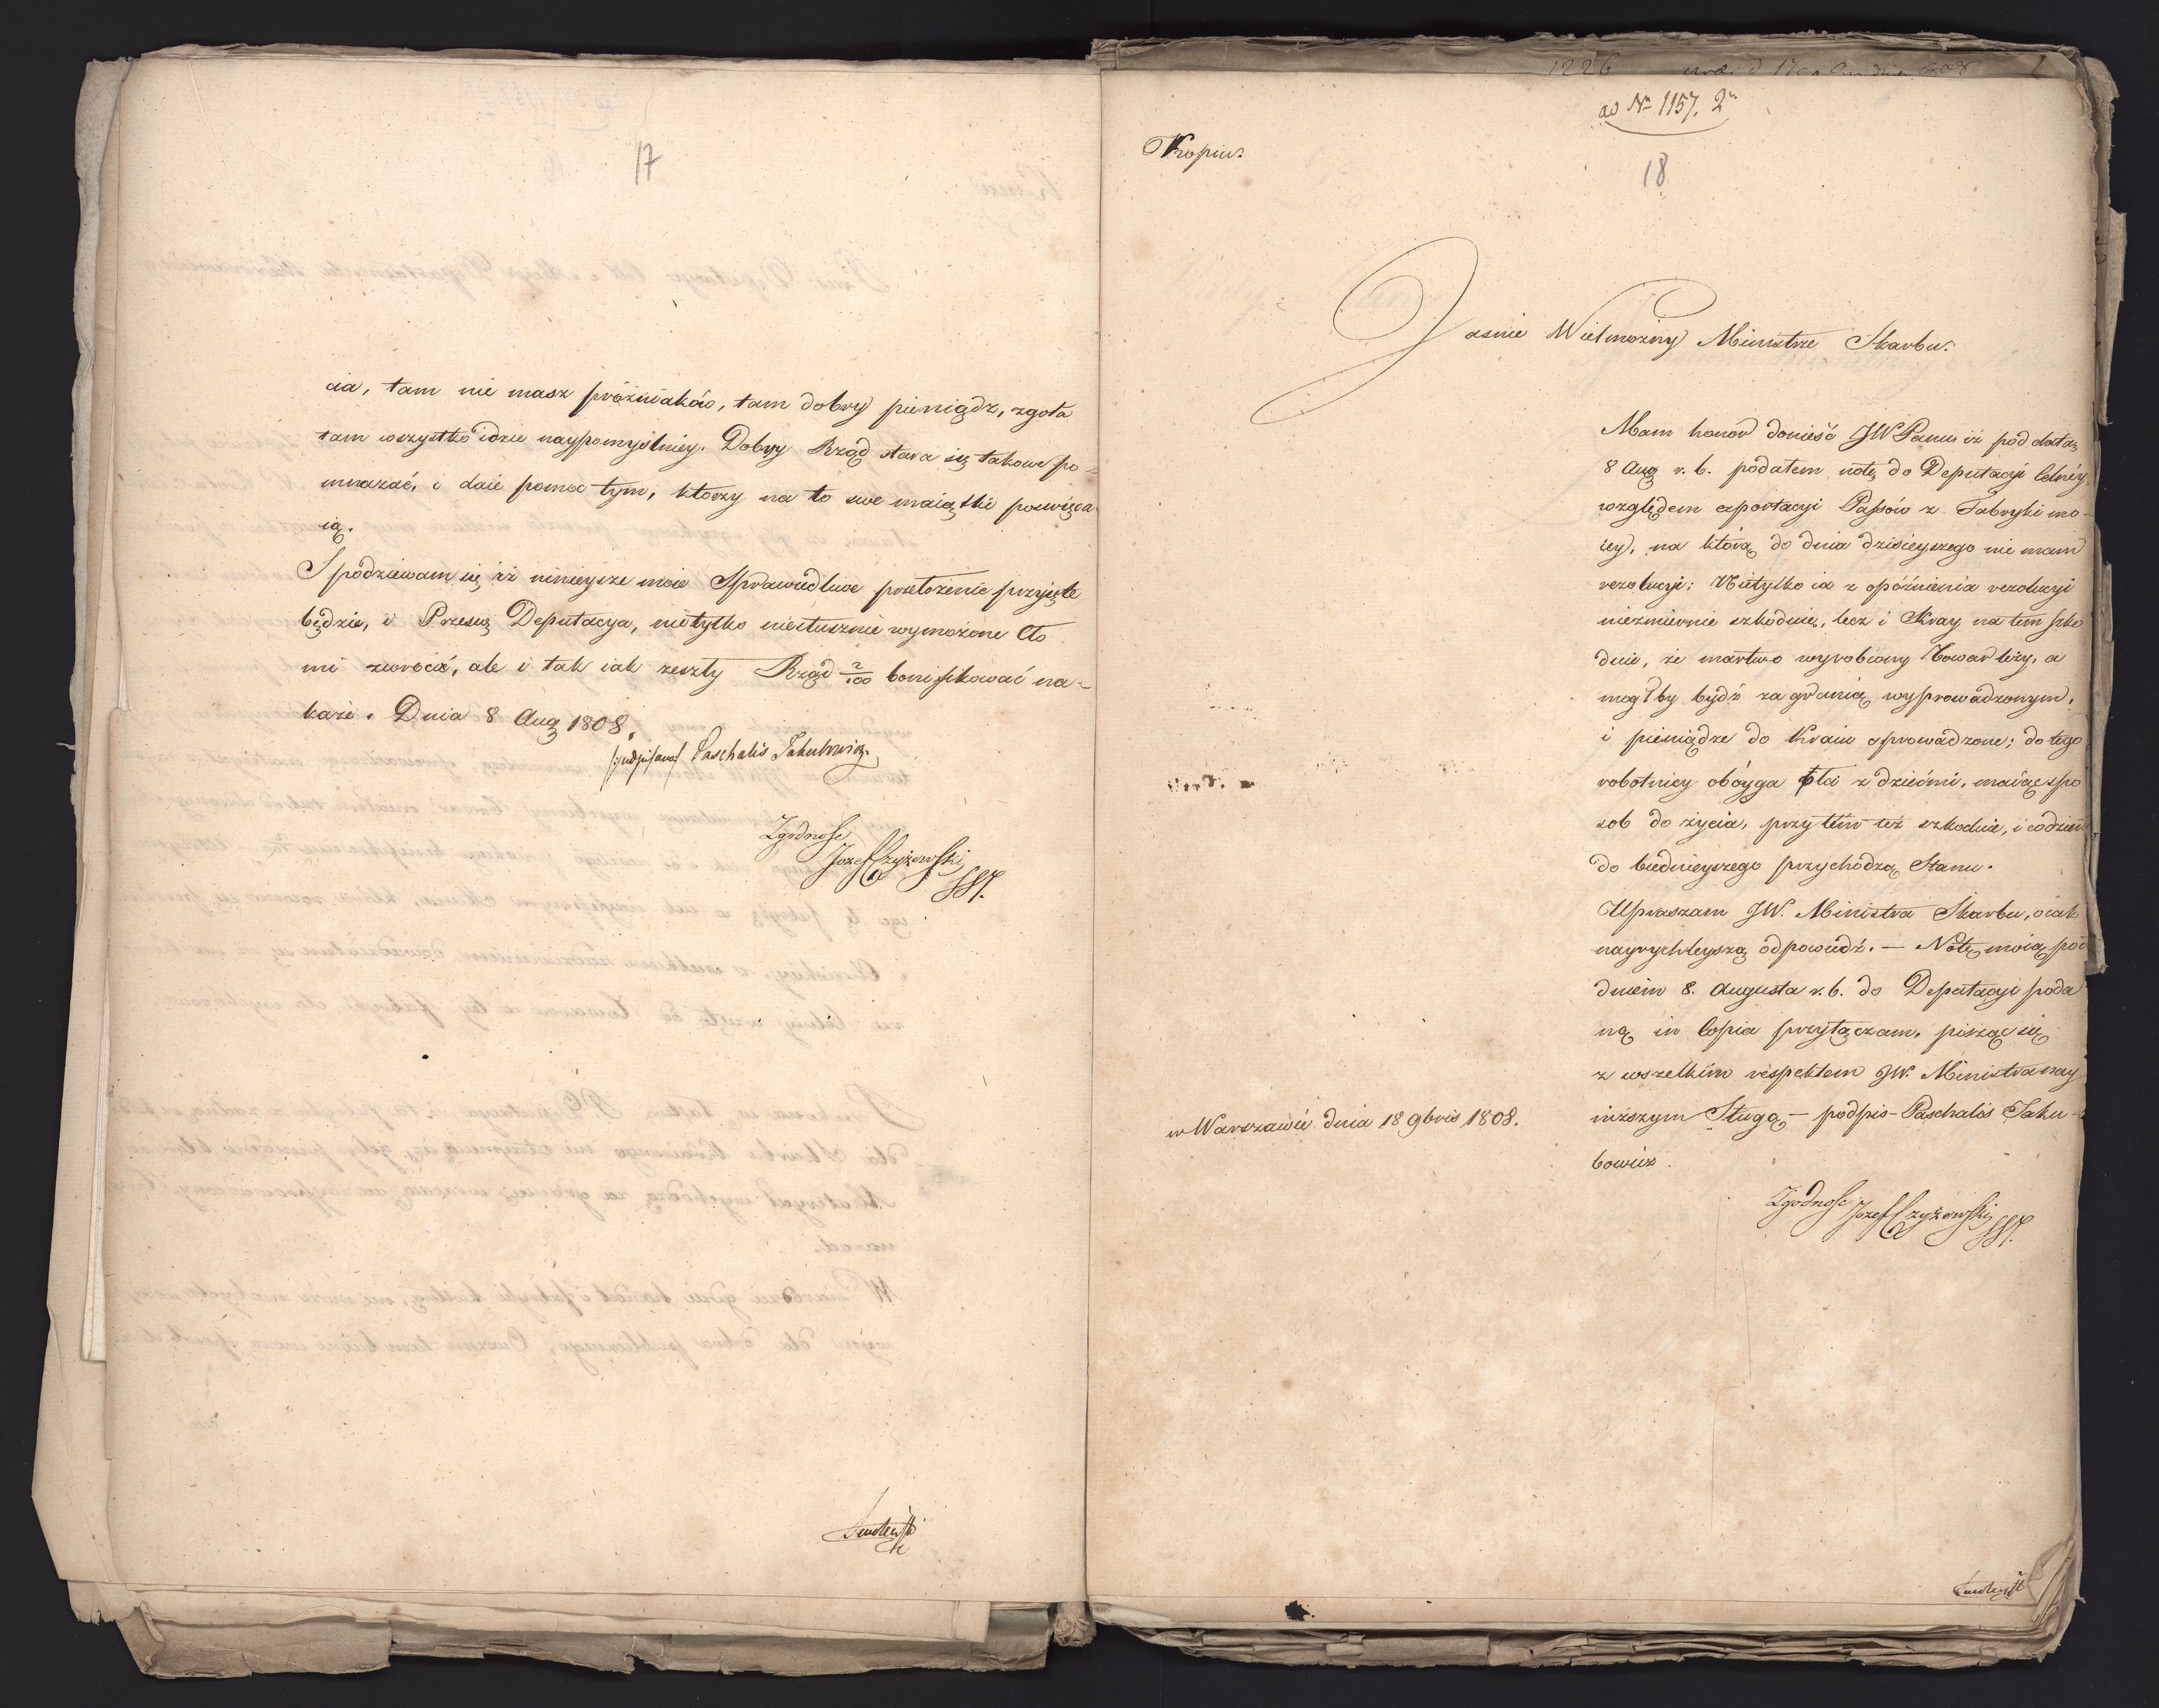 17
cia, tam nie masz próżniaków, tam dobry pieniądz, zgoła
tam wszystko idzie naypomyślniey. Dobry Rząd stara się takowe po-
mnażać, i daie pomoc tym, ktorzy na to swe maiątki poswięca
ią.
Spodziewam się iż ninieysze moie Sprawiedliwe przełożenie przyięte
będzie, i Przesw. Deputacya, nietylko niesłusznie wymożone Cło
mi zwrocić, ale i tak iak zeszły Rząd 2/100 bonifikować na-
każe. Dnia 8 Aug 1808.
/:podpisano/ Paschalis Jakubowicz
Zgodność
Jozef Czyżewski
1226
ad Nr 1157. 2
Kopia.
18
Jasnie Wielmożny Ministrze Skarbu.
Mam honor donieść JW Panu iż pod datą
8 Aug r. b. podałem notę do Deputacyi Celnéy
względem exportacyi Passów z Fabryki mo-
iey, na którą do dnia dzisieyszego nie mam
rezolucyi; Nietylko ia z opóźnienia rezolucyi
niezmiernie szkoduię, lecz i Kray na tem szko
duie, że martwo wyrobiony Towar leży, a
mogłby bydź za granicę wyprowadzonym,
i pieniądze do Kraiu wprowadzone; do tego
robotnicy obóyga płci z dziećmi, maiąc spo
sob do życia, przytém też szkoduie, i codzień
do biednieyszego przychodzą Stanu.
Upraszam JW. Ministra Skarbu, o iak
nayrychleyszą odpowiedź. — Notę moią pod
dniem 8. Augusta r. b. do Deputacyi poda
ną in Copia przyłączam, pisząc się
z wszelkim respektem JW. Ministra nay
niższym Sługą — podpis - Paschalis Jaku-
bowicz.
w Warszawie dnia 18 9bris 1808.
Zgodność Jozef Czyżewski